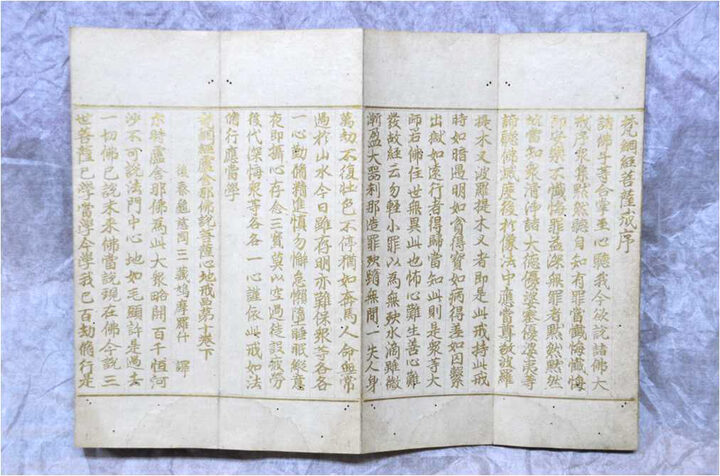 梵網經菩薩戒序
諸佛子等合掌至心聽我今欲說諸佛大
戒序衆集默然聽自知有罪當懺悔懺悔
即安樂不懺悔罪益深無罪者默然默然
故當知衆清淨諸大德優婆塞優婆夷等
諦聽佛滅度後於像法中應當尊敬波羅
提木叉波羅提木叉者即是此戒持此戒
時如暗遇明如貧得寶如病得差如囚繫
出獄如遠行者得歸當知此則是衆等大
師若佛住世無異此也怖心難生善心難
發故經云勿輕小罪以為無殃水滴雖微
漸盈大器刹那造罪殃墮無間一失人身
萬劫不復壯色不停猶如奔馬人命無常
過於山水今日雖存明亦難保衆等各各
一心勤脩精進慎勿懈怠懶墮睡眠縱意
夜即攝心存念三寶莫以空過徒設疲勞
後代深悔衆等各各一心謹依此戒如法
脩行應當學
梵網經盧舍那佛說菩薩心地戒品第十卷下
後秦龜茲國三藏鳩摩羅什 譯
尒時盧舍那佛為此大衆略開百千恒河
沙不可說法門中心地如毛頭許是過去
一切佛已說未來佛當說現在佛今說三
世菩薩已學當學今學我已百劫脩行是